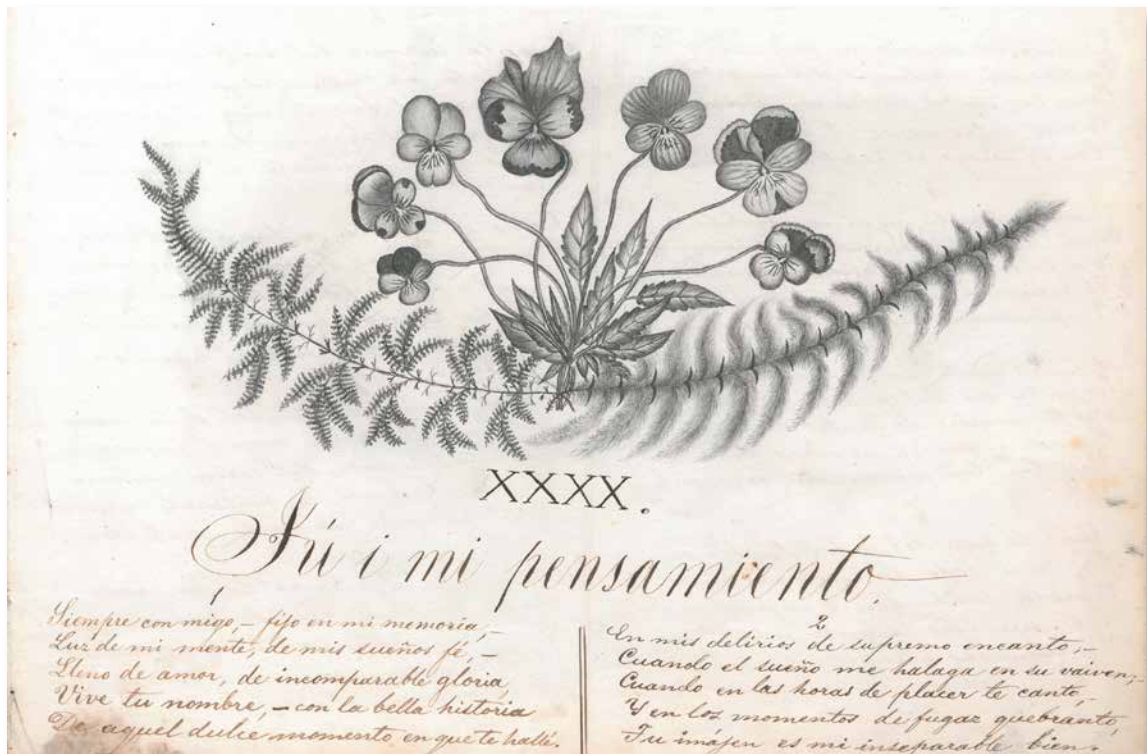 XXXX.
Tú i mi pensamiento.
1
Siempre con migo, – fijo en mi memoria, –
Luz de mi mente, de mis sueños fé, –
Lleno de amor, de incomparable gloria,
Vive tu nombre, – con la bella historia
De aquel dulce momento en que te hallé.
2
En mis delirios de supremo encanto, –
Cuando el sueño me halaga en su vaiven, –
Cuando en las horas de placer te canto, –
Y en los momentos de fugaz quebranto,
Tu imájen es mi inseparable bien –